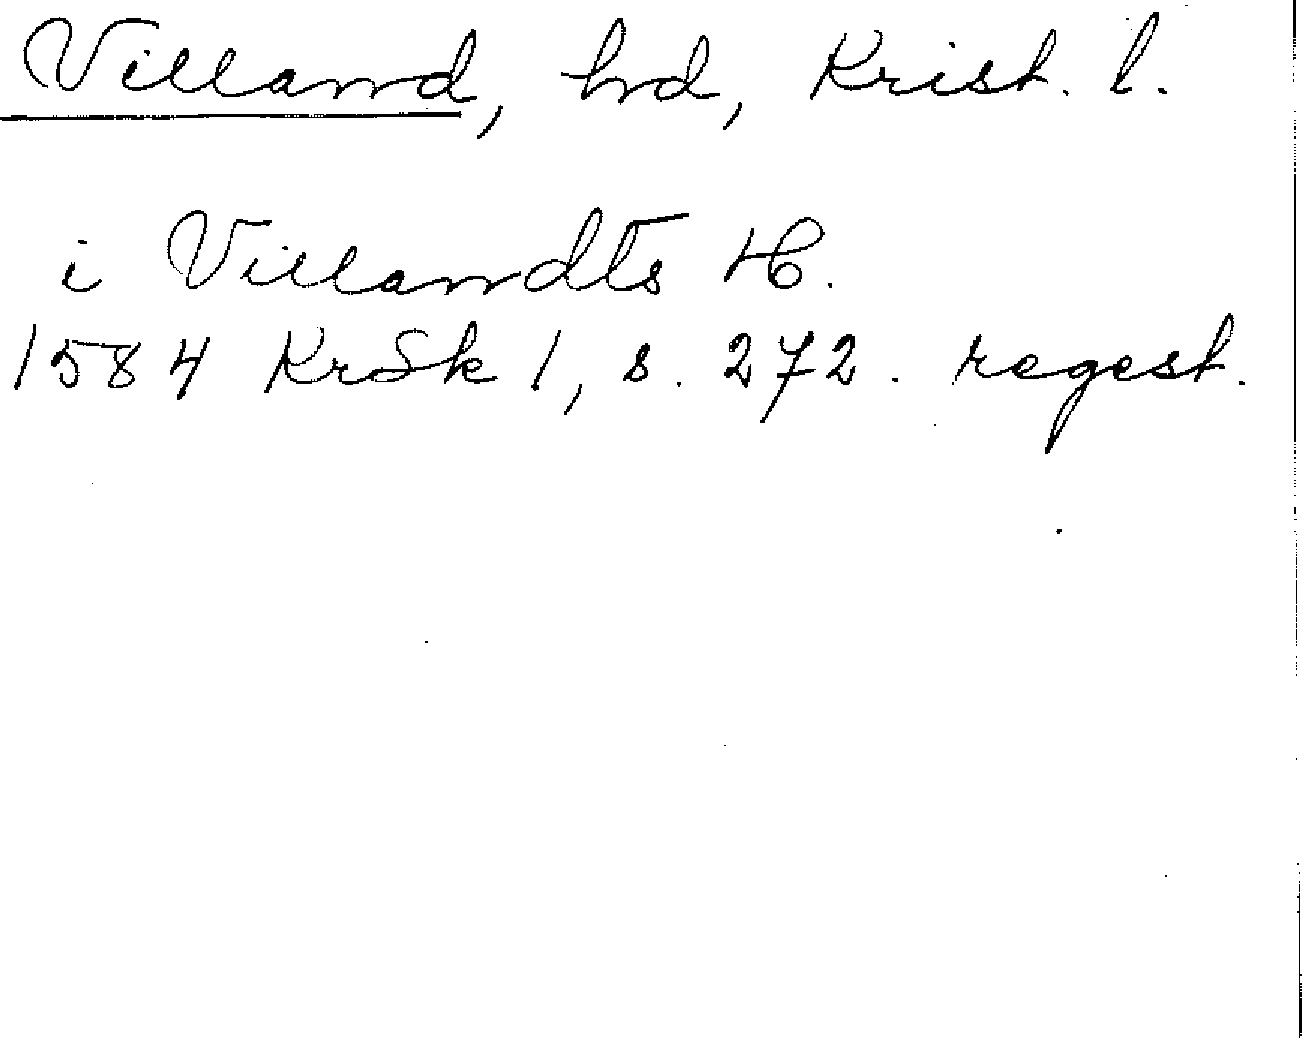 Villand, hd, Krist. l.
i Villandts H.
1584 KrSk 1, s. 272. regest.